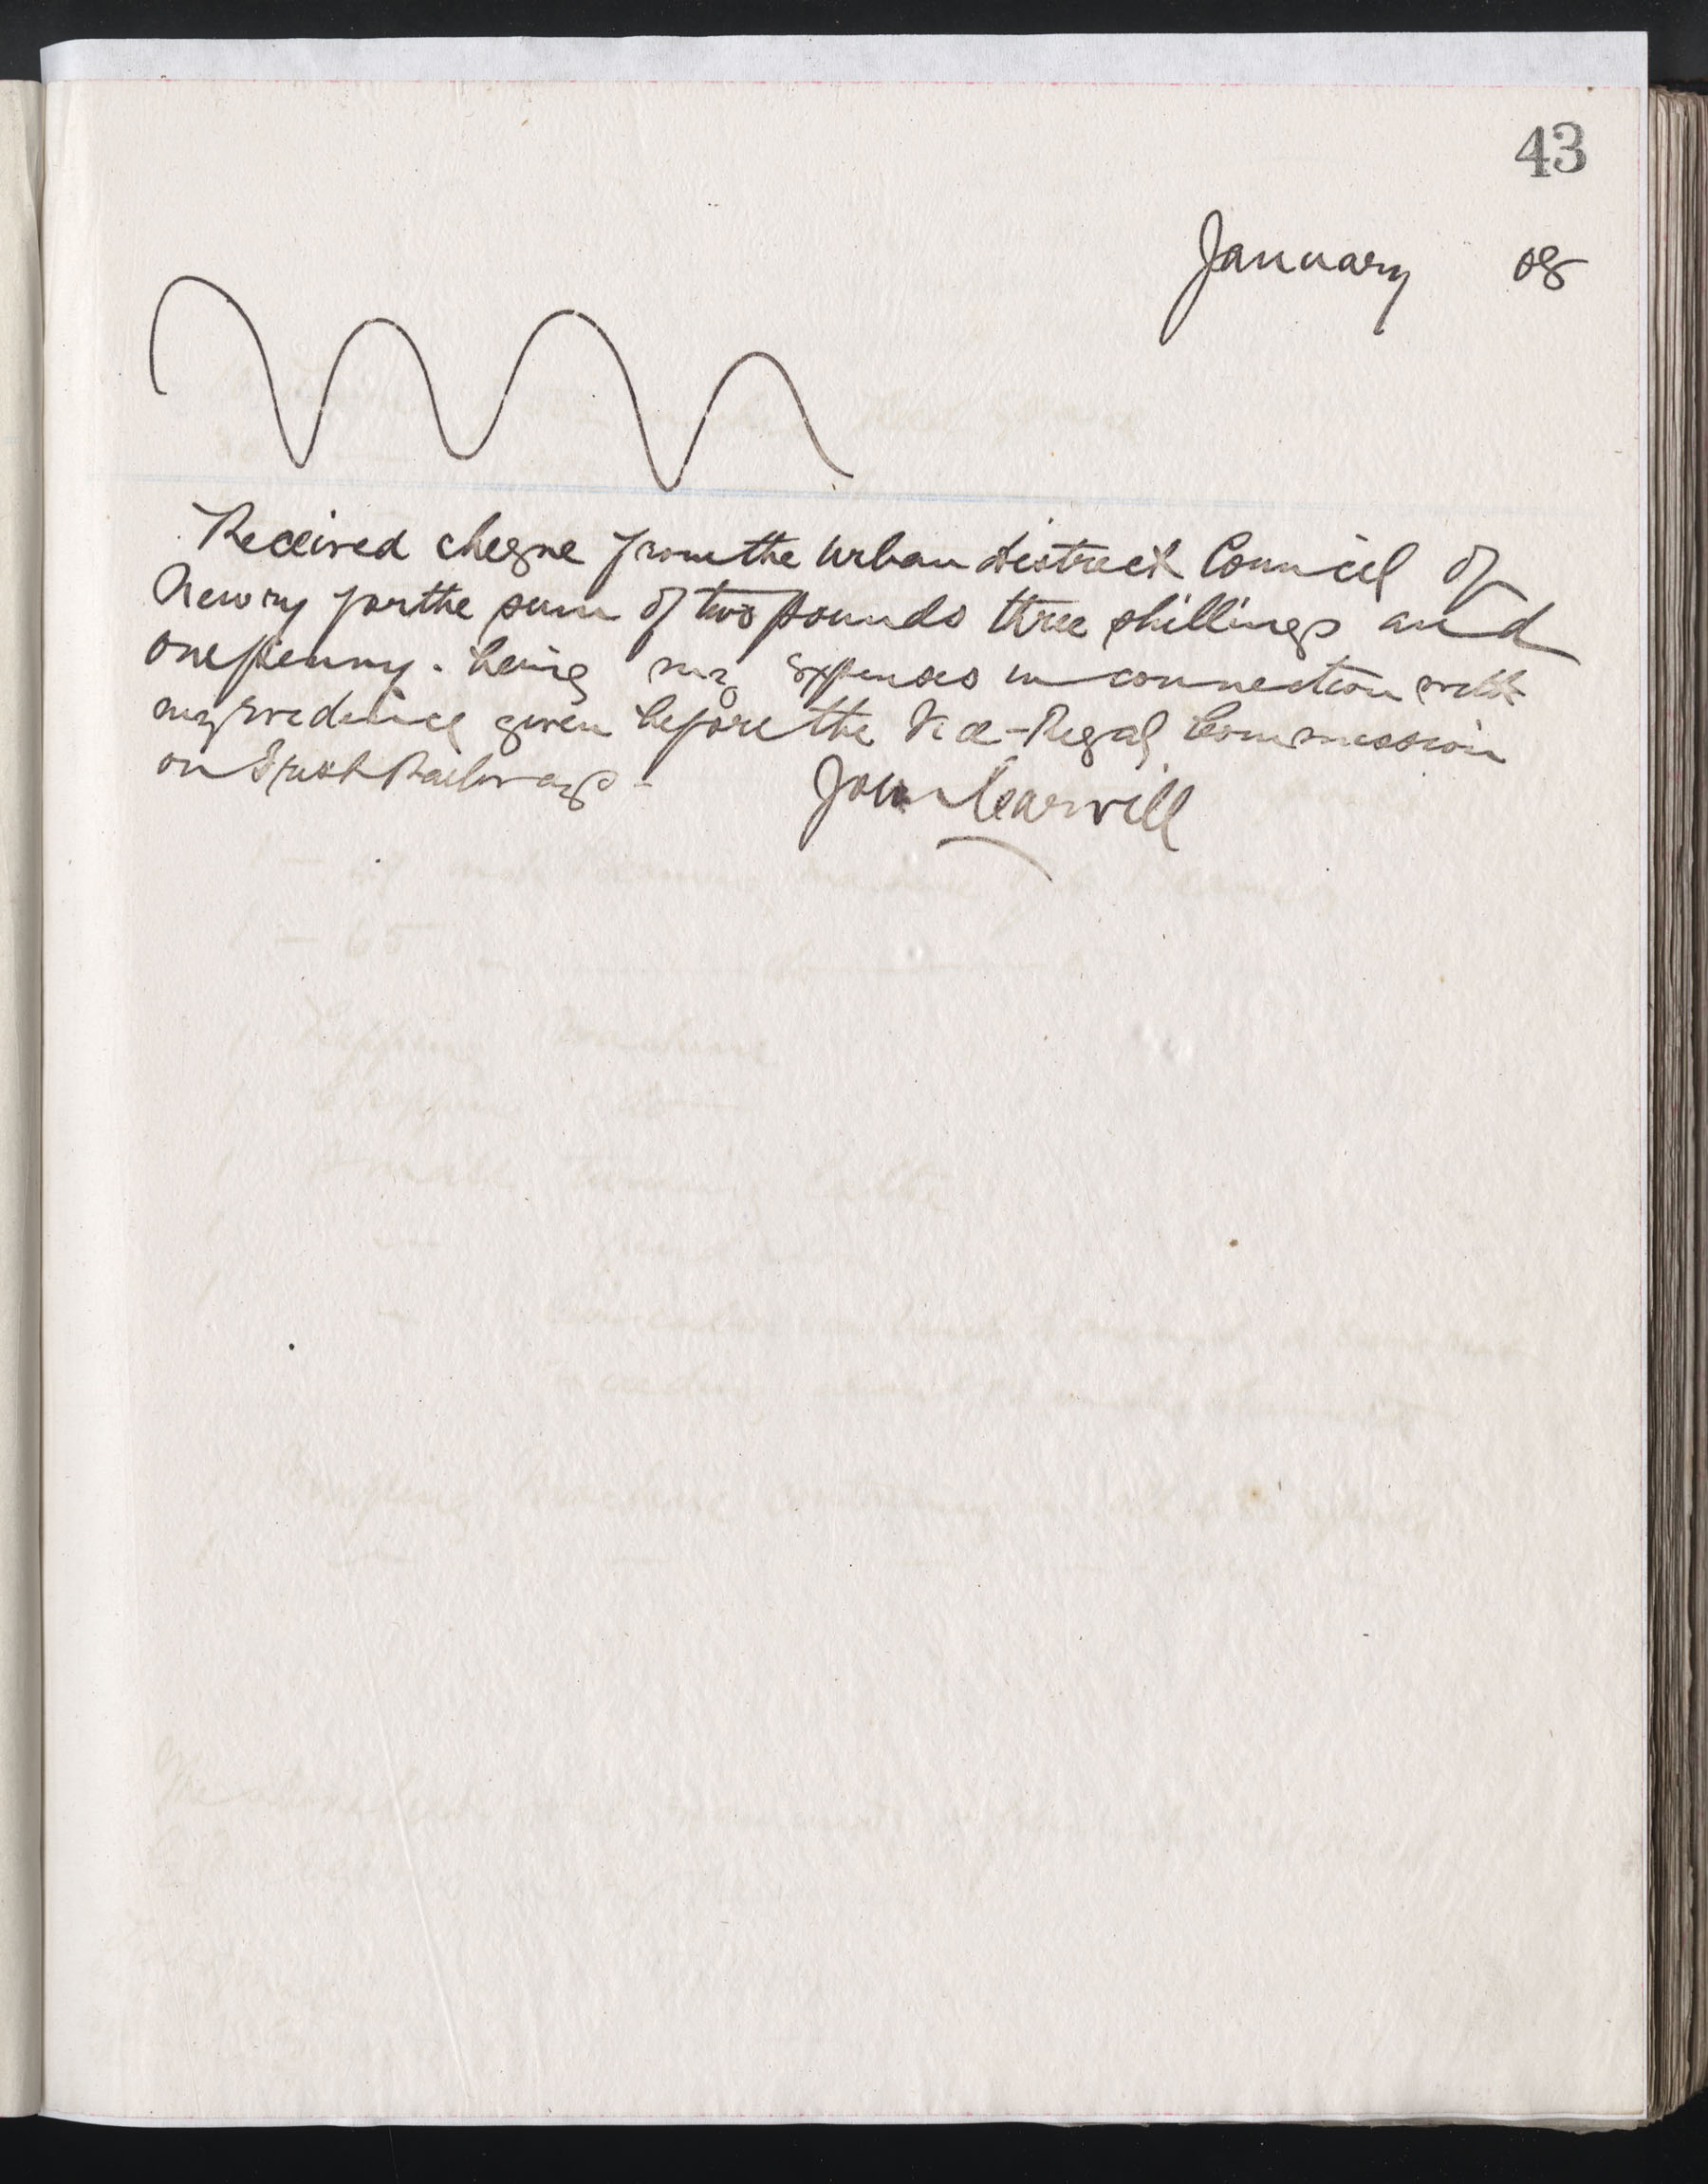 43
January 08
Received cheque from the Urban District Council of
Newry for the sum of two pounds three shillings and
one penny. being my expenses in connection with
my evidence given before the Vice-Regal Commission
on Irish Railways -
John Carvill